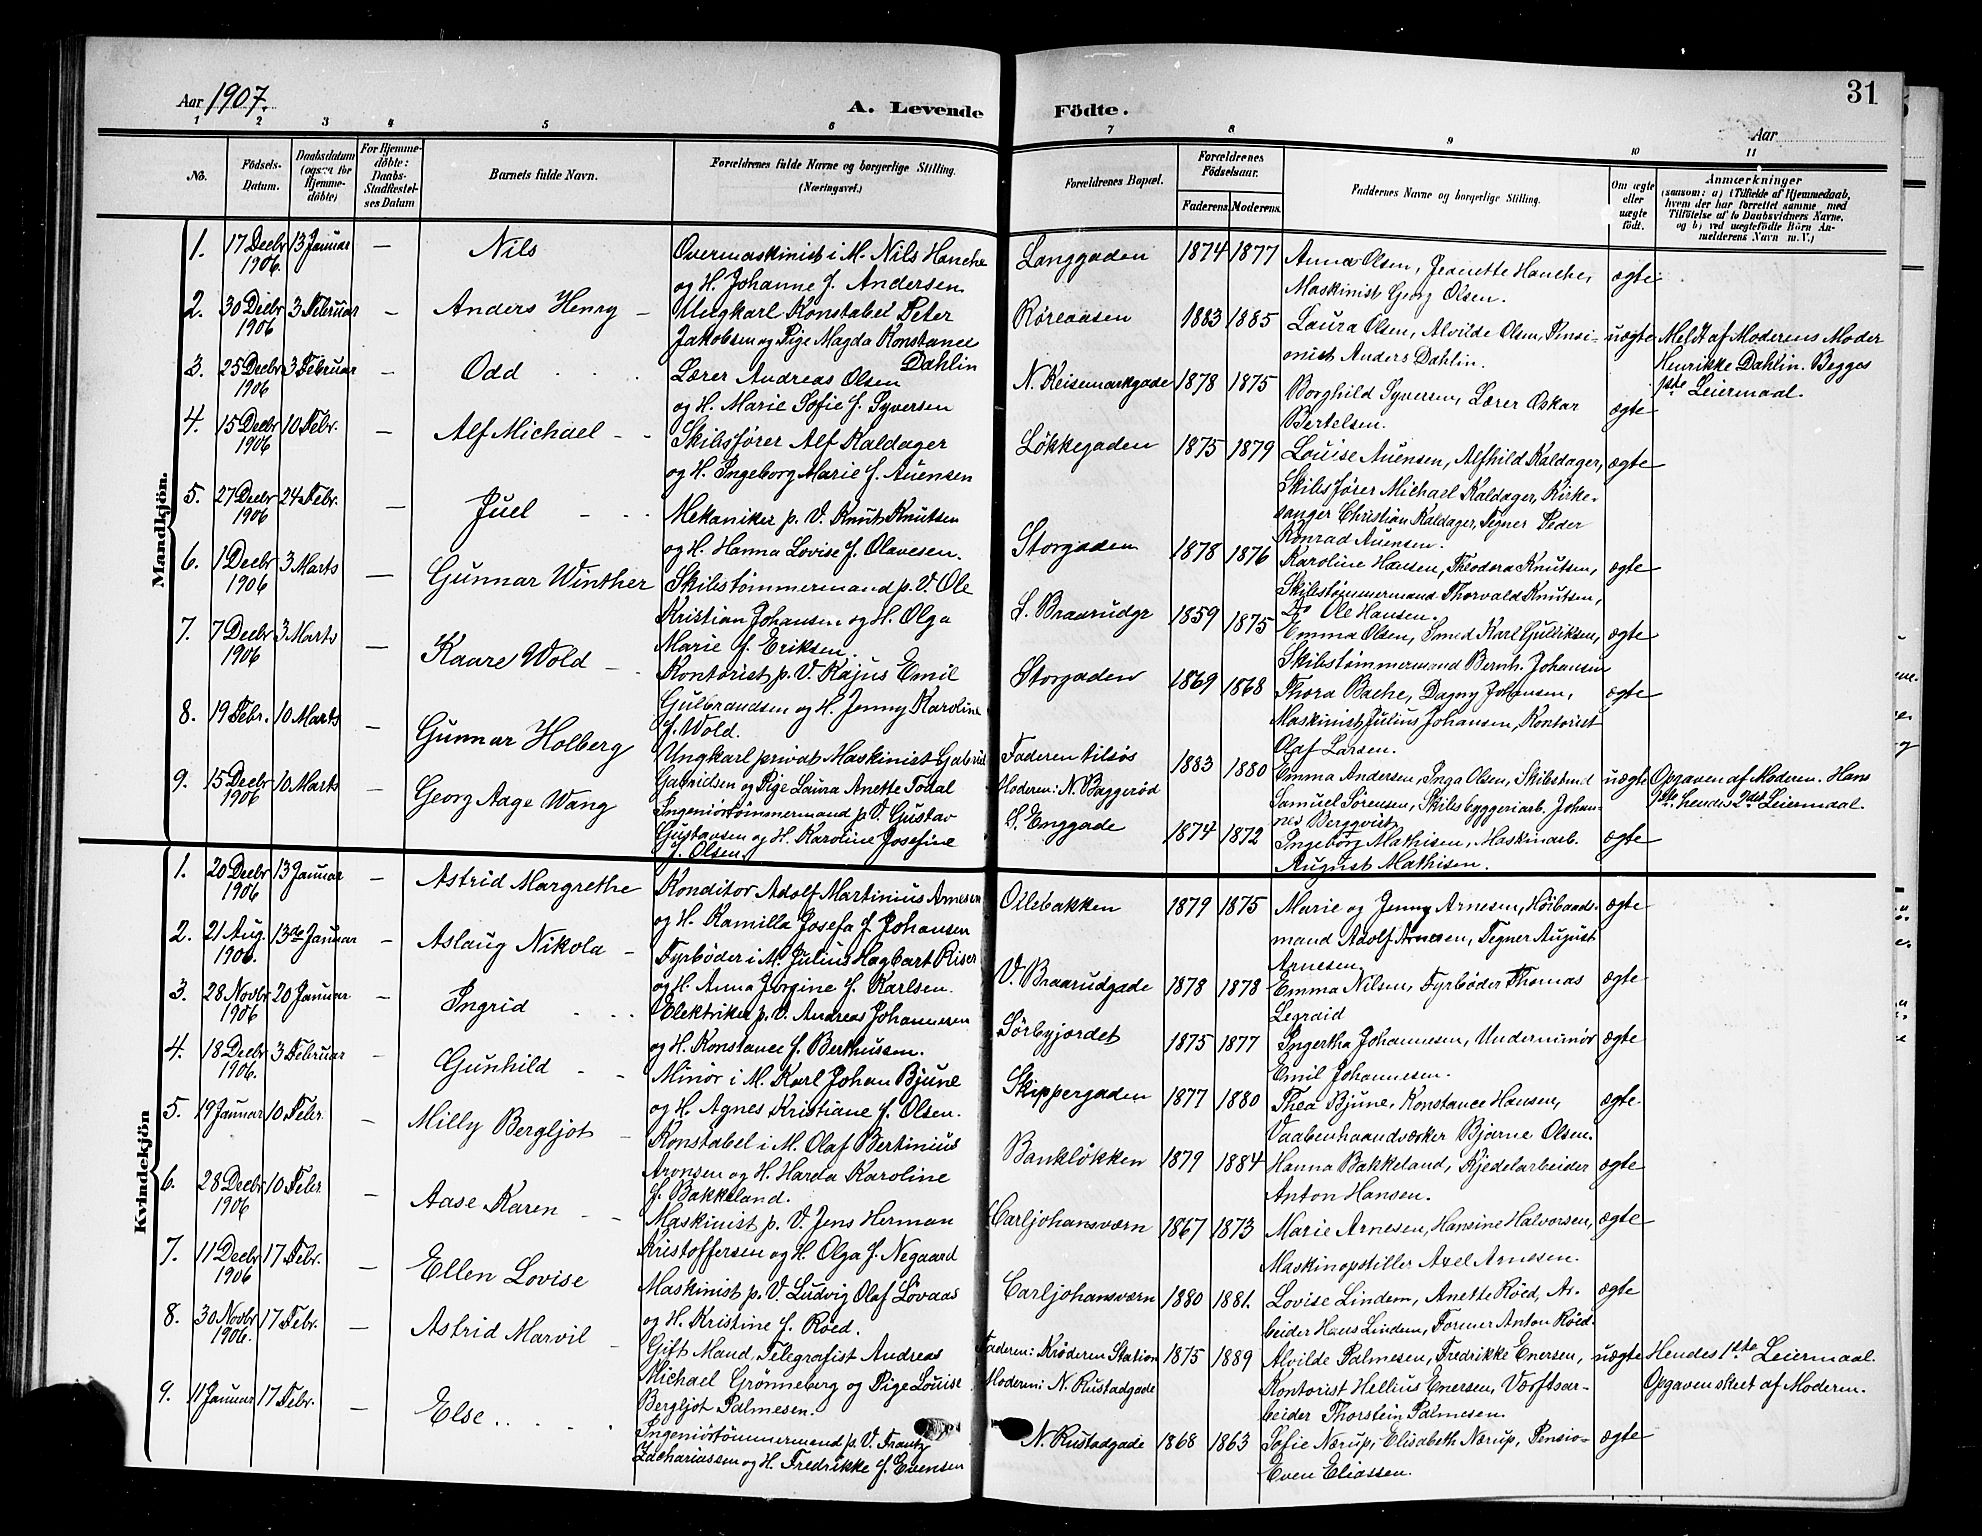 31
Aar 1907.
A. Levende Födte.
Aar
1 2 3 4 5 6 7 8 9 10 11
No.
Födsels-Datum.
Daabsdatum (ogsaa for Hjemme-döbte)
For Hjemme-döbte: Daabs-Stadfæstelses Datum
Barnets fulde Navn.
Forældrenes fulde Navne og borgerlige Stilling. (Næringsvei.)
Forældrenes Bopæl.
Forældrenes Födselsaar.
Faderens Moderens.
Faddernes Navne og borgerlige Stilling.
Om ægte eller uægte födt.
Anmærkninger
(saasom: a) i Tilfælde af Hjemmedaab,
hvem der har forrettet samme, med
Tilföielse af to Daabsvidners Navne,
og b) ved uægtefödte Börn An-
melderens Navn m. V.)
Mandkjön.
1. 17 Decbr 1906. 13 Januar — Nils
Overmaskinist i M. Nils Hanche
og H. Johanne f. Andersen.
Langgaden 1874 1877
Anna Olsen, Jeanette Hanche,
Maskinist Georg Olsen.
ægte
2. 30 Decbr 1906 3 Februar — Anders Henry —
Ungkarl Konstabel Peter
Jakobsen og Pige Magda Konstance
Dahlin
Röreaasen 1883 1885
Laura Olsen, Alvilde Olsen, Pensi-
onist Anders Dahlin.
uægte
Meldt af Moderens Moder
Henrikke Dahlin. Begges
1ste Leiermaal.
3. 25 Decbr 1906 3 Februar — Odd
Lærer Andreas Olsen
og H. Marie Sofie f. Syversen
N. Keisemarkgade 1878 1875
Borghild Syversen, Lærer Oskar
Bertelsen.
ægte
4. 15 Decbr 1906 10 Febr. — Alf Michael
Skibsfører Alf Kaldager
og H. Ingeborg Marie f. Auensen
Løkkegaden 1875 1879
Louise Auensen, Alfhild Kaldager,
Skibsfører Michael Kaldager, Kirke-
sanger Christian Kaldager, Tegner Peder
Konrad Auensen.
ægte
5. 27 Decbr 1906 24 Febr. — Juel
Mekaniker p. V. Knut Knutsen
og H. Hanna Lovise f. Olavesen.
Storgaden 1878 1876
Karoline Hansen, Theodora Knutsen,
Skibstømmermand Thorvald Knutsen,
Do Ole Hansen.
ægte
6. 1 Decbr 1906 3 Marts — Gunnar Winther
Skibstømmermand p. V. Ole
Kristian Johansen og H. Olga
Marie f. Eriksen.
S. Braarudgt 1859 1875
Emma Olsen, Smed Karl Gulliksen,
Skibstømmermand Bernh. Johansen
ægte
7. 7 Decbr 1906 3 Marts — Kaare Wold
Kontorist p. V. Kajus Emil
Gulbrandsen og H. Jenny Karoline
f. Wold.
Storgaden 1869 1868
Thora Bache, Dagny Johansen,
Maskinist Julius Johansen, Kontorist
Olaf Larsen.
ægte
8. 19 Febr. 10 Marts — Gunnar Holberg
Ungkarl privat Maskinist Gabriel
Gabrielsen og Pige Laura Anette Todal
Faderen tilsøs
Moderen: N. Baggerød
1883 1880
Emma Andersen, Inga Olsen, Skibstmd
Samuel Sørensen, Skibsbyggeriarb. Johan-
nes Bergqvist
uægte
Opgaven af Moderen. Hans
1ste hendes 2det Leiermaal.
9. 15 Decbr 1906 10 Marts — Georg Aage Wang
Ingeniørtømmermand p. V. Gustav
Gustavsen og H. Karoline Josefine
f. Olsen.
S. Enggade 1874 1872
Ingeborg Mathisen, Maskinarb.
August Mathisen.
ægte
Kvindekjön
1. 20 Decbr 1906 13 Januar — Astrid Margrethe
Konditor Adolf Martinius Arnesen
og H. Kamilla Josefa f. Johansen
Ollebakken 1879 1875
Marie og Jenny Arnesen, Høibaads-
mand Adolf Arnesen, Tegner August
Arnesen.
ægte
2. 21 Aug. 1906. 13de Januar — Aslaug Nikola —
Fyrbøder i M. Julius Hagbart Riser
og H. Anna Jørgine f. Karlsen.
V. Braarudgade 1878 1878
Emma Nilsen, Fyrbøder Thomas
Legraid
ægte
3. 28 Novbr 1906 20 Januar — Ingrid
Elektriker p. V. Andreas Johannesen
og H. Konstance f. Berthussen.
Sørbyjordet 1875 1877
Ingertha Johannesen, Underminør
Emil Johannesen.
ægte
4. 18 Decbr 1906. 3 Februar — Gunhild
Minør i M. Karl Johan Bjune
og H. Agnes Kristiane f. Olsen.
Skippergaden 1877 1880
Thea Bjune, Konstance Hansen,
Vaabenhaandværker Bjarne Olsen.
ægte
5. 19 Januar 10 Febr — Milly Bergljot —
Konstabel i M. Olaf Bertinius
Aronsen og H. Harda Karoline
f. Bakkeland.
Bankløkken 1879 1884
Hanna Bakkeland, Kjedelarbeider
Anton Hansen.
ægte
6. 28 Decbr 1906 10 Febr — Aase Karen
Maskinist p. V. Jens Herman
Kristoffersen og H. Olga f. Negaard
Carljohansværn 1867 1873
Marie Arnesen, Hansine Halvorsen,
Maskinopstiller Axel Arnesen.
ægte
7. 11 Decbr 1906 17 Febr. — Ellen Lovise
Maskinist p. V. Ludvig Olaf Løvaas
og H. Kristine f. Røed.
Carljohansværn 1880 1881.
Lovise Lindem, Anette Røed, Ar-
beider Hans Lindem, Former Anton Røed.
ægte
8. 30 Novbr 1906. 17 Febr. — Astrid Marvil —
Gift Mand, Telegrafist Andreas
Michael Grønneberg og Pige Louise
Bergljot Palmesen.
Faderen: Krøderen Station
Moderen: N. Rustadgade
1875 1889
Alvilde Palmesen, Fredrikke Enersen,
Kontorist Hellius Enersen, Værftsar-
beider Thorstein Palmesen.
uægte
Hendes 1ste Leiermaal.
Opgaven skeet af Moderen.
9. 11 Januar 17 Febr. — Else
Ingeniørtømmermand p. V. Frantz
Zachariassen og H. Fredrikke f. Evensen
N. Rustadgade 1868 1863
Sofie Nærup, Elisabeth Nærup, Pensio-
Even Eliassen.
ægte